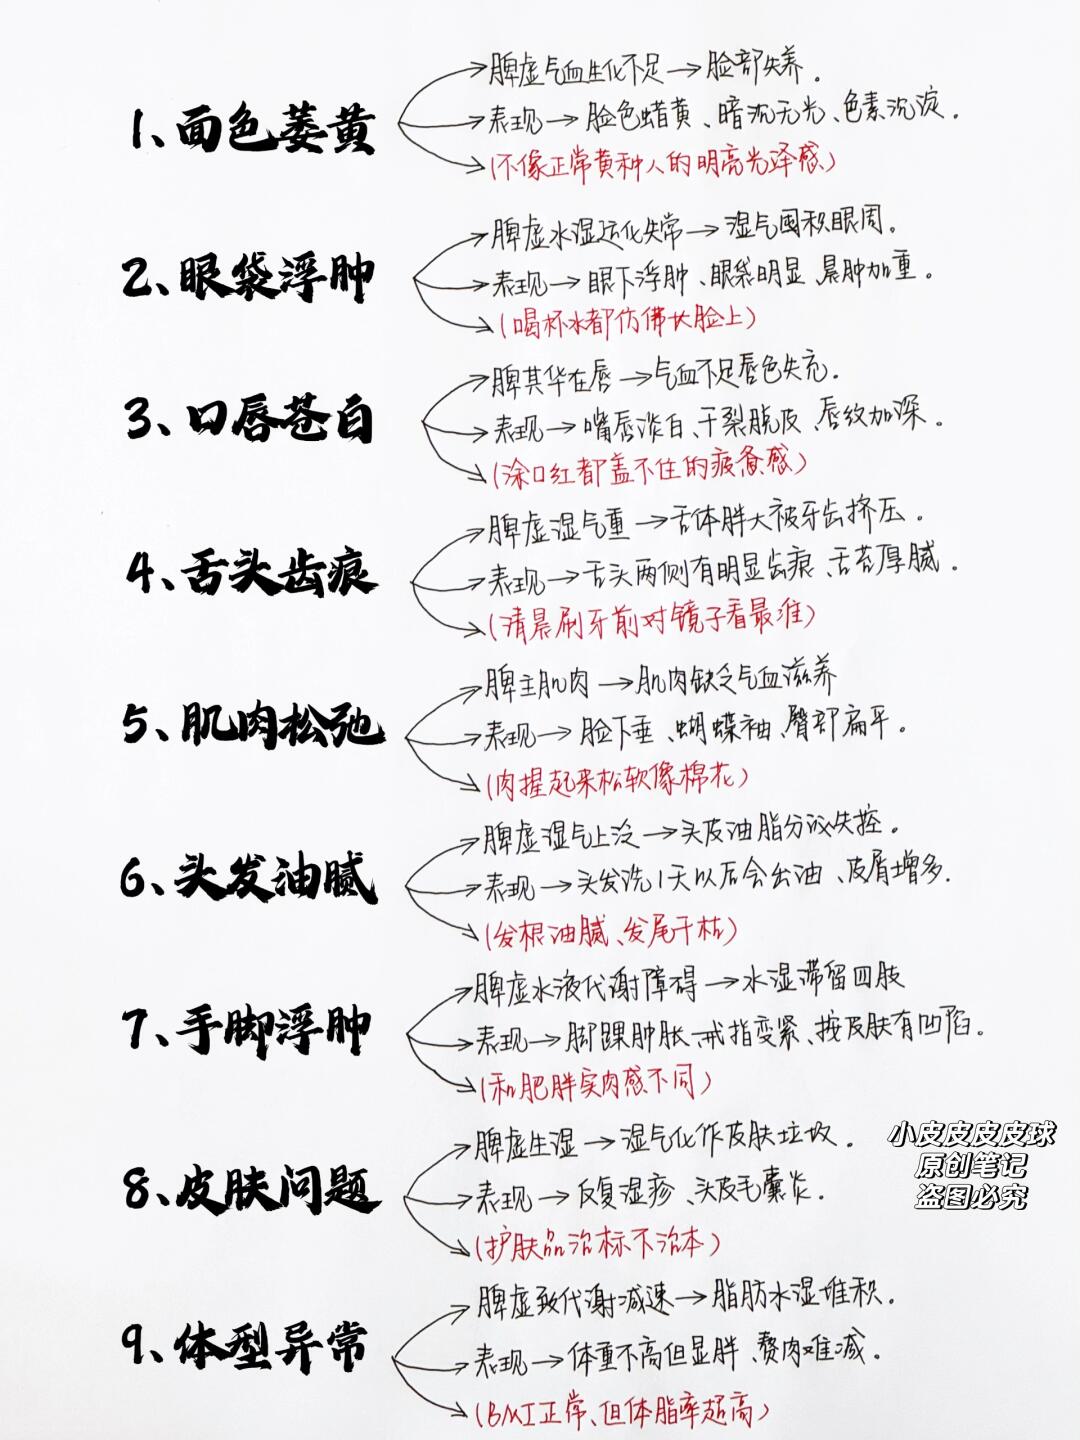 脾虚气血生化不足→脸部失养。
1、面色萎黄
表现→脸色蜡黄、暗沉无光、色素沉淀。
(不像正常黄种人的明亮光泽感)
脾虚水湿运化失常→湿气囤积眼周。
2、眼袋浮肿
表现→眼下浮肿、眼袋明显、晨肿加重。
(喝杯水都仿佛长脸上)
脾其华在唇→气血不足唇色失充.
3、口唇苍白
表现→嘴唇淡白、干裂脱皮、唇纹加深。
(涂口红都盖不住的疲惫感)
脾虚湿气重→舌体胖大被牙齿挤压。
4、舌头齿痕
表现→舌头两侧有明显齿痕、舌苔厚腻。
(清晨刷牙前对镜子看最准)
脾主肌肉→肌肉缺乏气血滋养
5、肌肉松弛
表现→脸下垂、蝴蝶袖、臀部扁平。
(肉握起来松软像棉花)
脾虚湿气上泛→头皮油脂分泌失控。
6、头发油腻
表现→头发洗1天以后会出油、皮屑增多.
(发根油腻、发尾干枯)
脾虚水液代谢障碍→水湿滞留四肢
7、手脚浮肿
表现→脚踝肿胀、戒指变紧、按皮肤有凹陷。
(和肥胖实肉感不同)
脾虚生湿→湿气化作皮肤垃圾。
8、皮肤问题
表现→反复湿疹、头皮毛囊炎.
(护肤品治标不治本)
小皮皮皮皮球
原创笔记
盗图必究
脾虚致代谢减速→脂肪水湿堆积.
9、体型异常
表现→体重不高但显胖、赘肉难减。
(BMI正常、但体脂率超高)